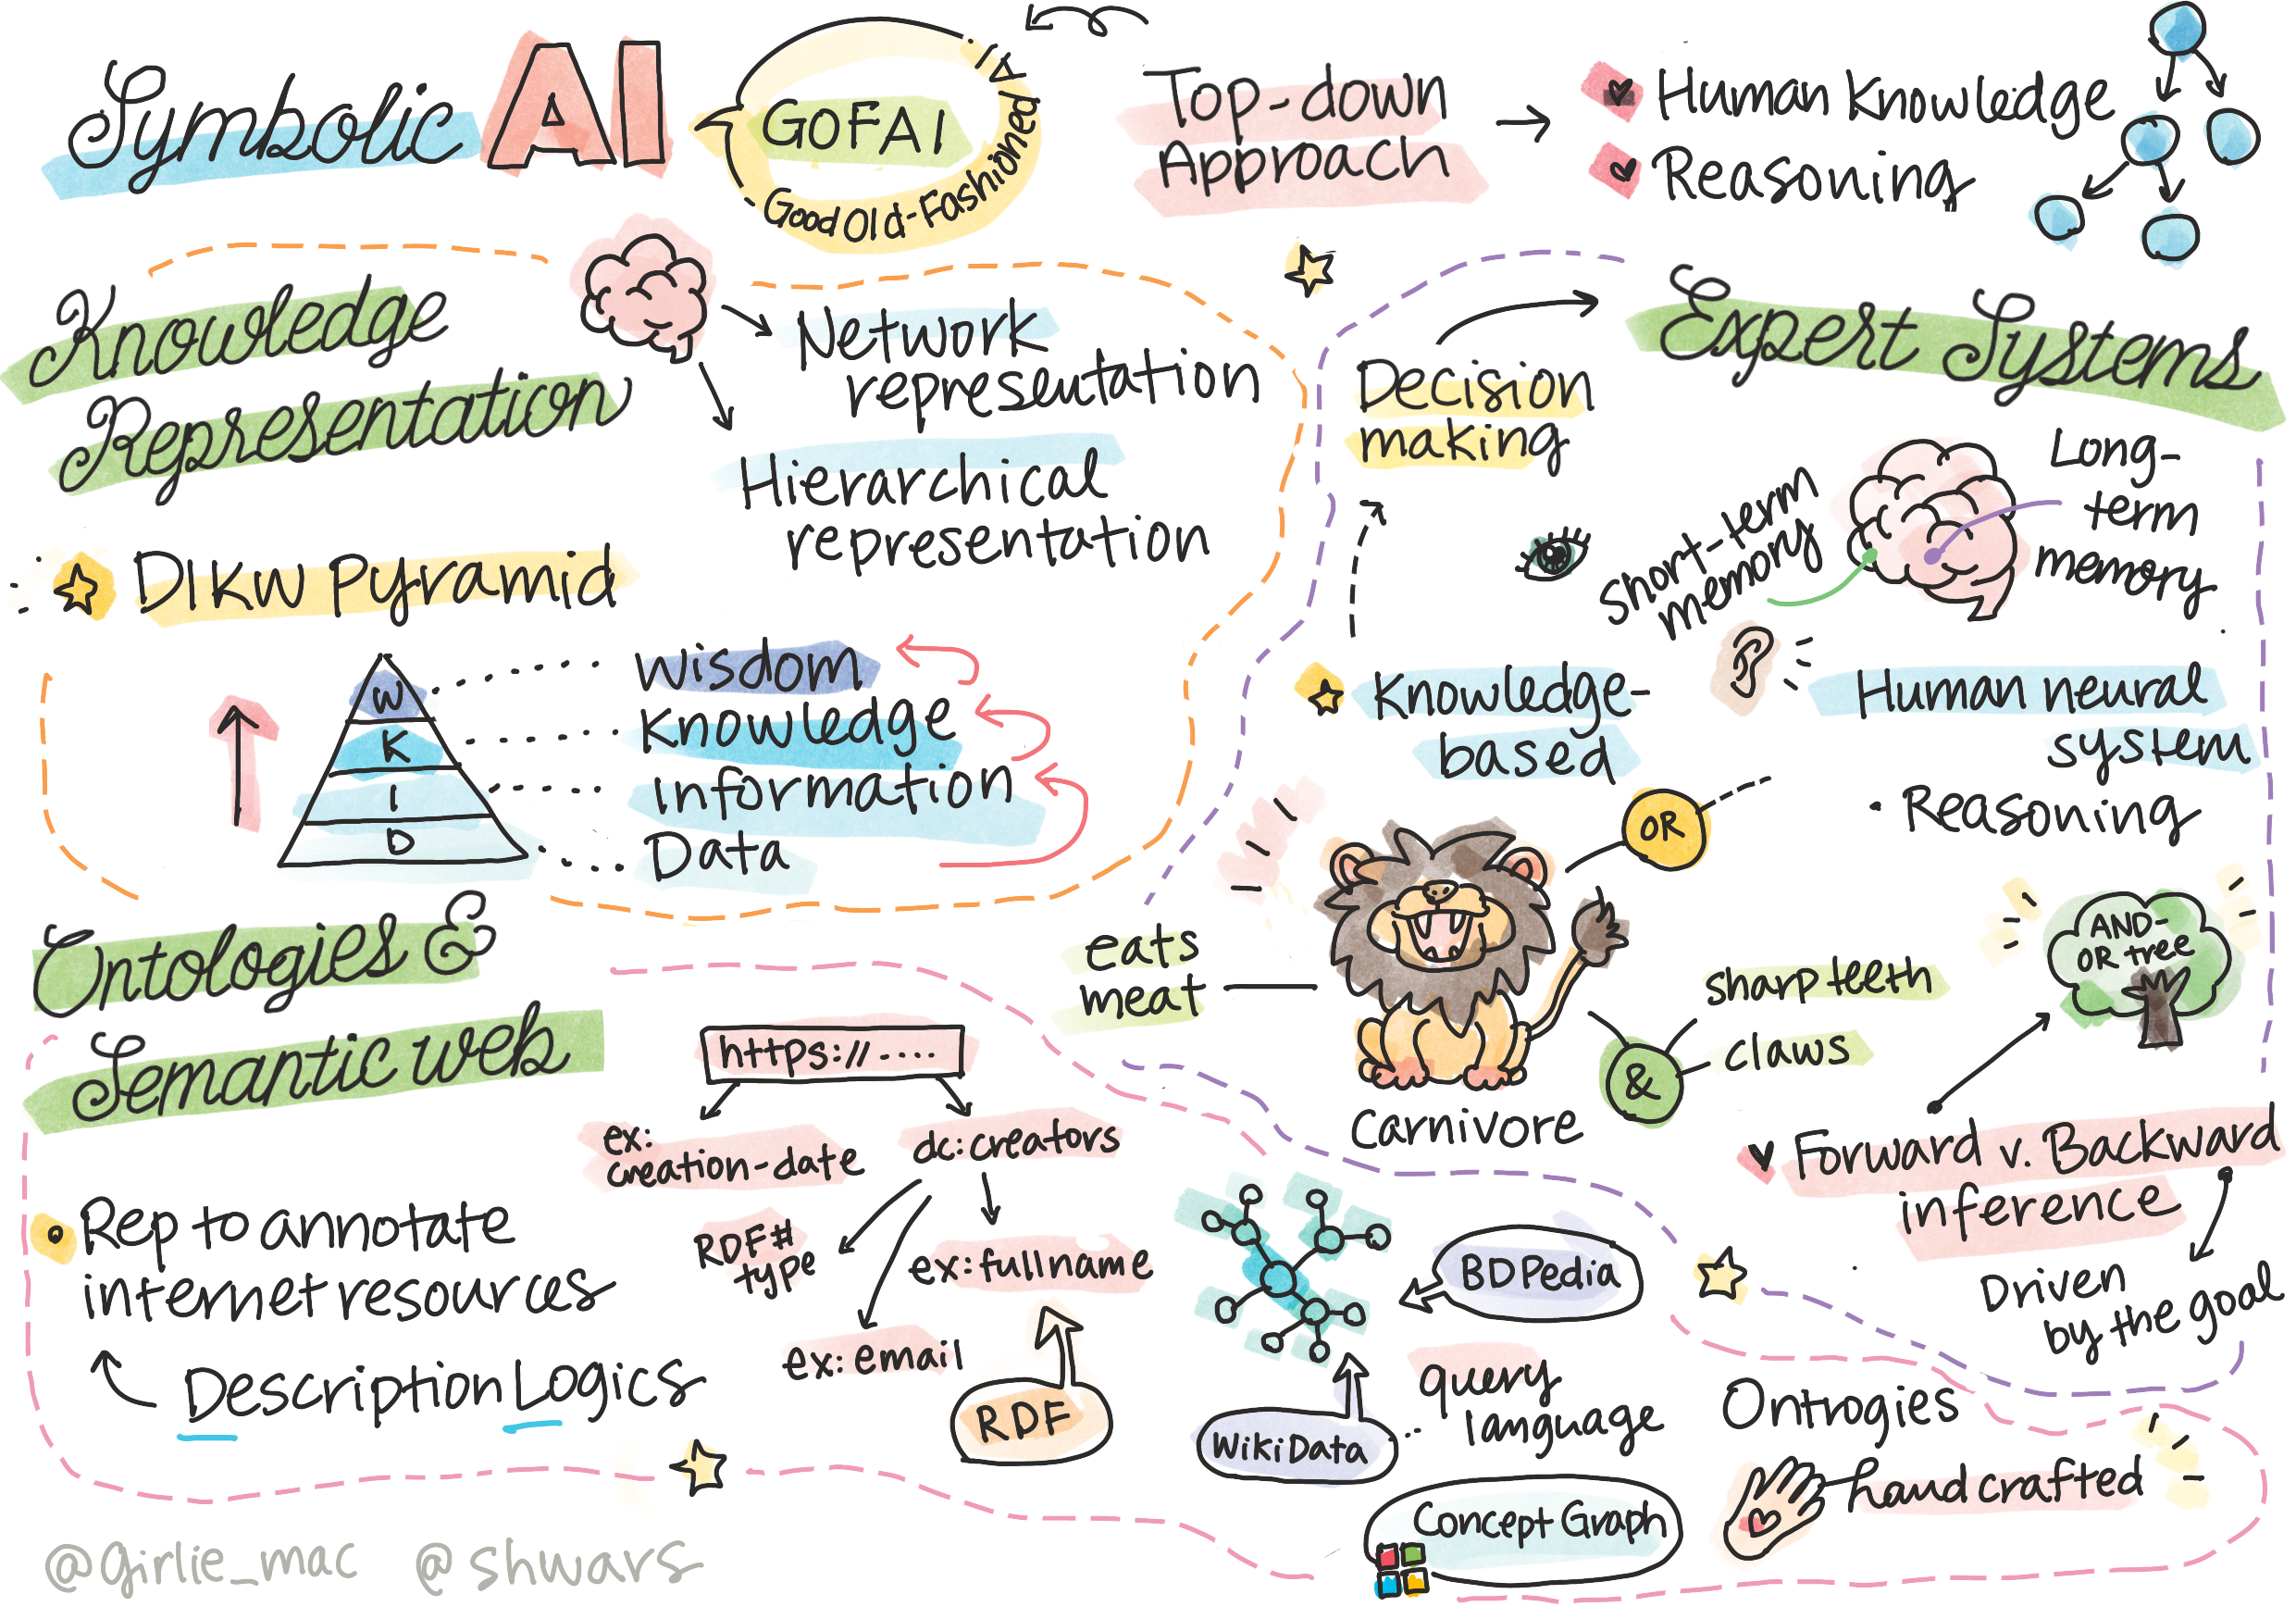 Symbolic AI
GOFAI
Good Old-Fashioned AI
Top-down
Approach
Human Knowledge
Reasoning
Knowledge
Representation
Network
representation
Hierarchical
representation
DIKW Pyramid
W
K
I
D
Wisdom
Knowledge
Information
Data
Expert Systems
Decision
making
Short-term
memory
Long-
term
memory
Knowledge-
based
Human neural
system
• Reasoning
OR
eats
meat
&
sharp teeth
claws
Carnivore
AND-
OR tree
Forward v. Backward
inference
Driven
by the goal
Ontologies &
Semantic web
https://....
ex:
creation-date
dc:creators
RDF#
type
ex:fullname
ex:email
RDF
Rep to annotate
internet resources
Description Logics
BDPedia
WikiData
query
language
Concept Graph
Ontrogies
handcrafted
@girlie_mac @shwars